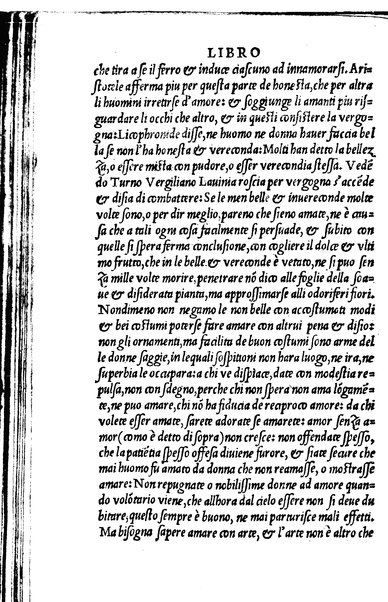 LIBRO
che tira a se il ferro & induce ciascuno ad innamorarsi. Ari=
stotele afferma piu per questa parte de honesta, che per altra
li huomini irretirse d'amore: & soggiunge li amanti piu ris=
guardare li occhi che altro, & in questi consistere la vergo=
gna: Licophronede disse, ne huomo ne donna hauer faccia bel
la se non l'ha honesta & vereconda: Molti han detto la bellez
za, o essere mista con pudore, o esser verecondia stessa. Vedē
do Turno Vergiliano Lauinia roscia per vergogna s'accēde
& disia di combattere: Se le men belle & inuereconde molte
volte sono, o per dir meglio, pareno che sieno amate, ne è cau=
sa che a tali ogni cosa facilmente si persuade, & subito con
quelle si spera ferma conclusione, con cogliere il dolce & vlti
mo frutto, che in le belle & vereconde è vetato, ne si puo sen
za mille volte morire, penetrare nō dico alle foglie della soa=
ue & disiderata pianta, ma approssimarse alli odoriferi fiori.
Nondimeno non negamo le non belle con accostumati modi
& bei costumi poterse fare amare con altrui pena & disio:
non gli ornamenti, ma facilita de buon costumi sono arme del
le donne saggie, in le quali sospittoni non hara luogo, ne ira, ne
superbia le occupara: a chi ve dispiace, date con modestia re=
pulsa, non con sdegno, perche chi non spera non ama lōgamē=
te, ne puo amare, chi nō ha fiducia de reciproco amore: da chi
volete esser amate, sarete adorate se amarete: amor senza a=
mor (como è detto di sopra) non cresce: non offendate spesso,
che la patiētia spesso offesa diuiene furore, & siate secure che
mai huomo fu amato da donna che non reamasse, o mostrasse
amare: Non repugnate o nobilissime donne ad amore quan=
do volōtario viene, che allhora dal cielo essere non si deue du
bitare; questo sempre è buono, ne mai parturisce mali effetti.
Ma bisogna sapere amare con arte, & l'arte non è altro che